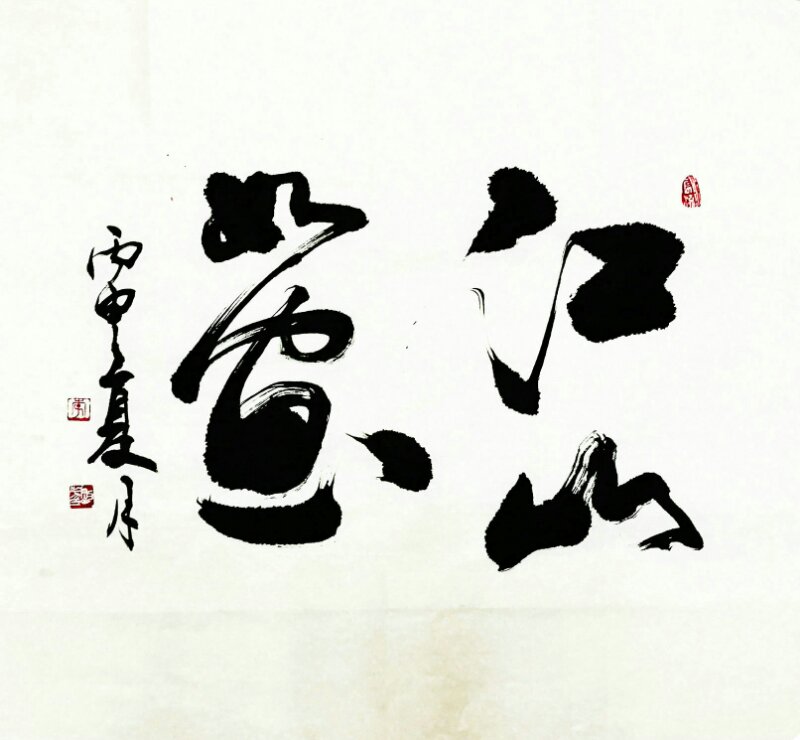 江山
如画
丙申夏月